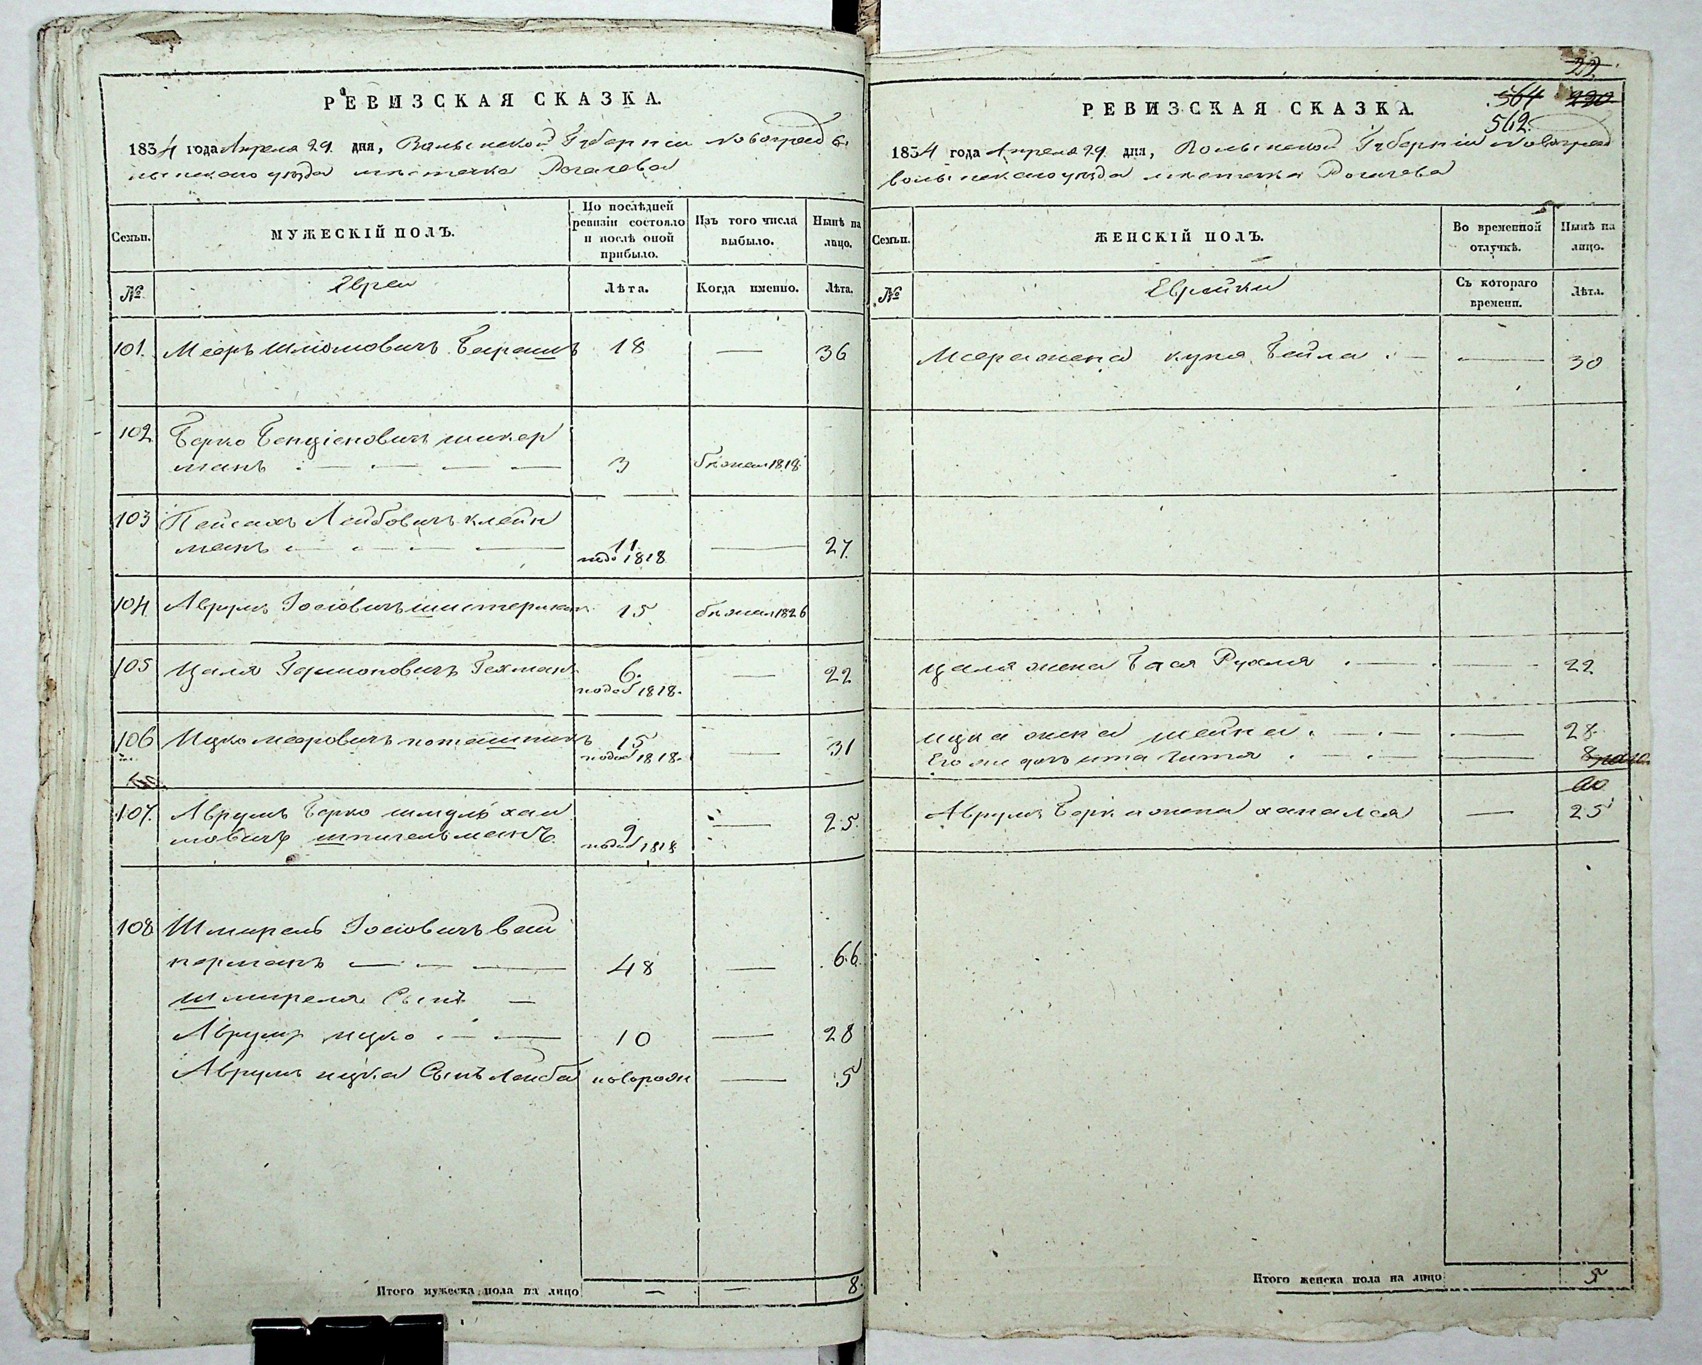 РЕВИЗСКАЯ СКАЗКА.
1834 года Апреля 29 дня, Волынской Губерніи Новоград во
лынскаго уѣзда мѣстечка Рогачева
Семьи.
МУЖЕСКІЙ ПОЛЪ.
По послѣдней ревизіи состояло и послѣ оной прибыло.
Изъ того числа выбыло.
Нынѣ на лицо.
№
Евреи
Лѣта.
Когда именно.
Лѣта.
101. Мееръ Шліомовичъ 18 — 36
102 Берко Бенціеновичъ шикер
манъ 3 бѣжал 1818
103 Пейсахъ Лейбовичъ клейн
манъ 11 — 27
подо 1818
104 Аврумъ Іосіовичъ шистерман 15 бѣжал 1826
105 Цаля Гехман 6 — 22
1818.
106 Ицко Меровичъ поташникъ 15 — 31
1818.
107. Аврумъ Берко шмуль хаи
мовичъ шпигельманъ 9 — 25.
1818
108 Шмирель Іосіовичъ вай
нерманъ 48 — 66.
шмиреля Сынъ
Аврумъ ицко 10 — 28
Аврумъ ицка Сынъ Лейба новорож — 5
Итого мужеска пола на лицо — — 8.
22.
564 220
562.
РЕВИЗСКАЯ СКАЗКА.
1834 года Апреля 29 дня, Волынской Губерніи Новоград
волынскаго уѣзда мѣстечка Рогачева
Семьи.
ЖЕНСКІЙ ПОЛЪ.
Во временной отлучкѣ.
Нынѣ на лицо.
№
Еврейки
Съ котораго времени.
Лѣта.
Меера жена Бейла — 30
Цаля жена Бася Рухля — 22
ицка жена шейна — 28.
Его же дочь ита гитля — 8
Аврумъ Берка жена ханалея — 25
Итого женска пола на лицо 5